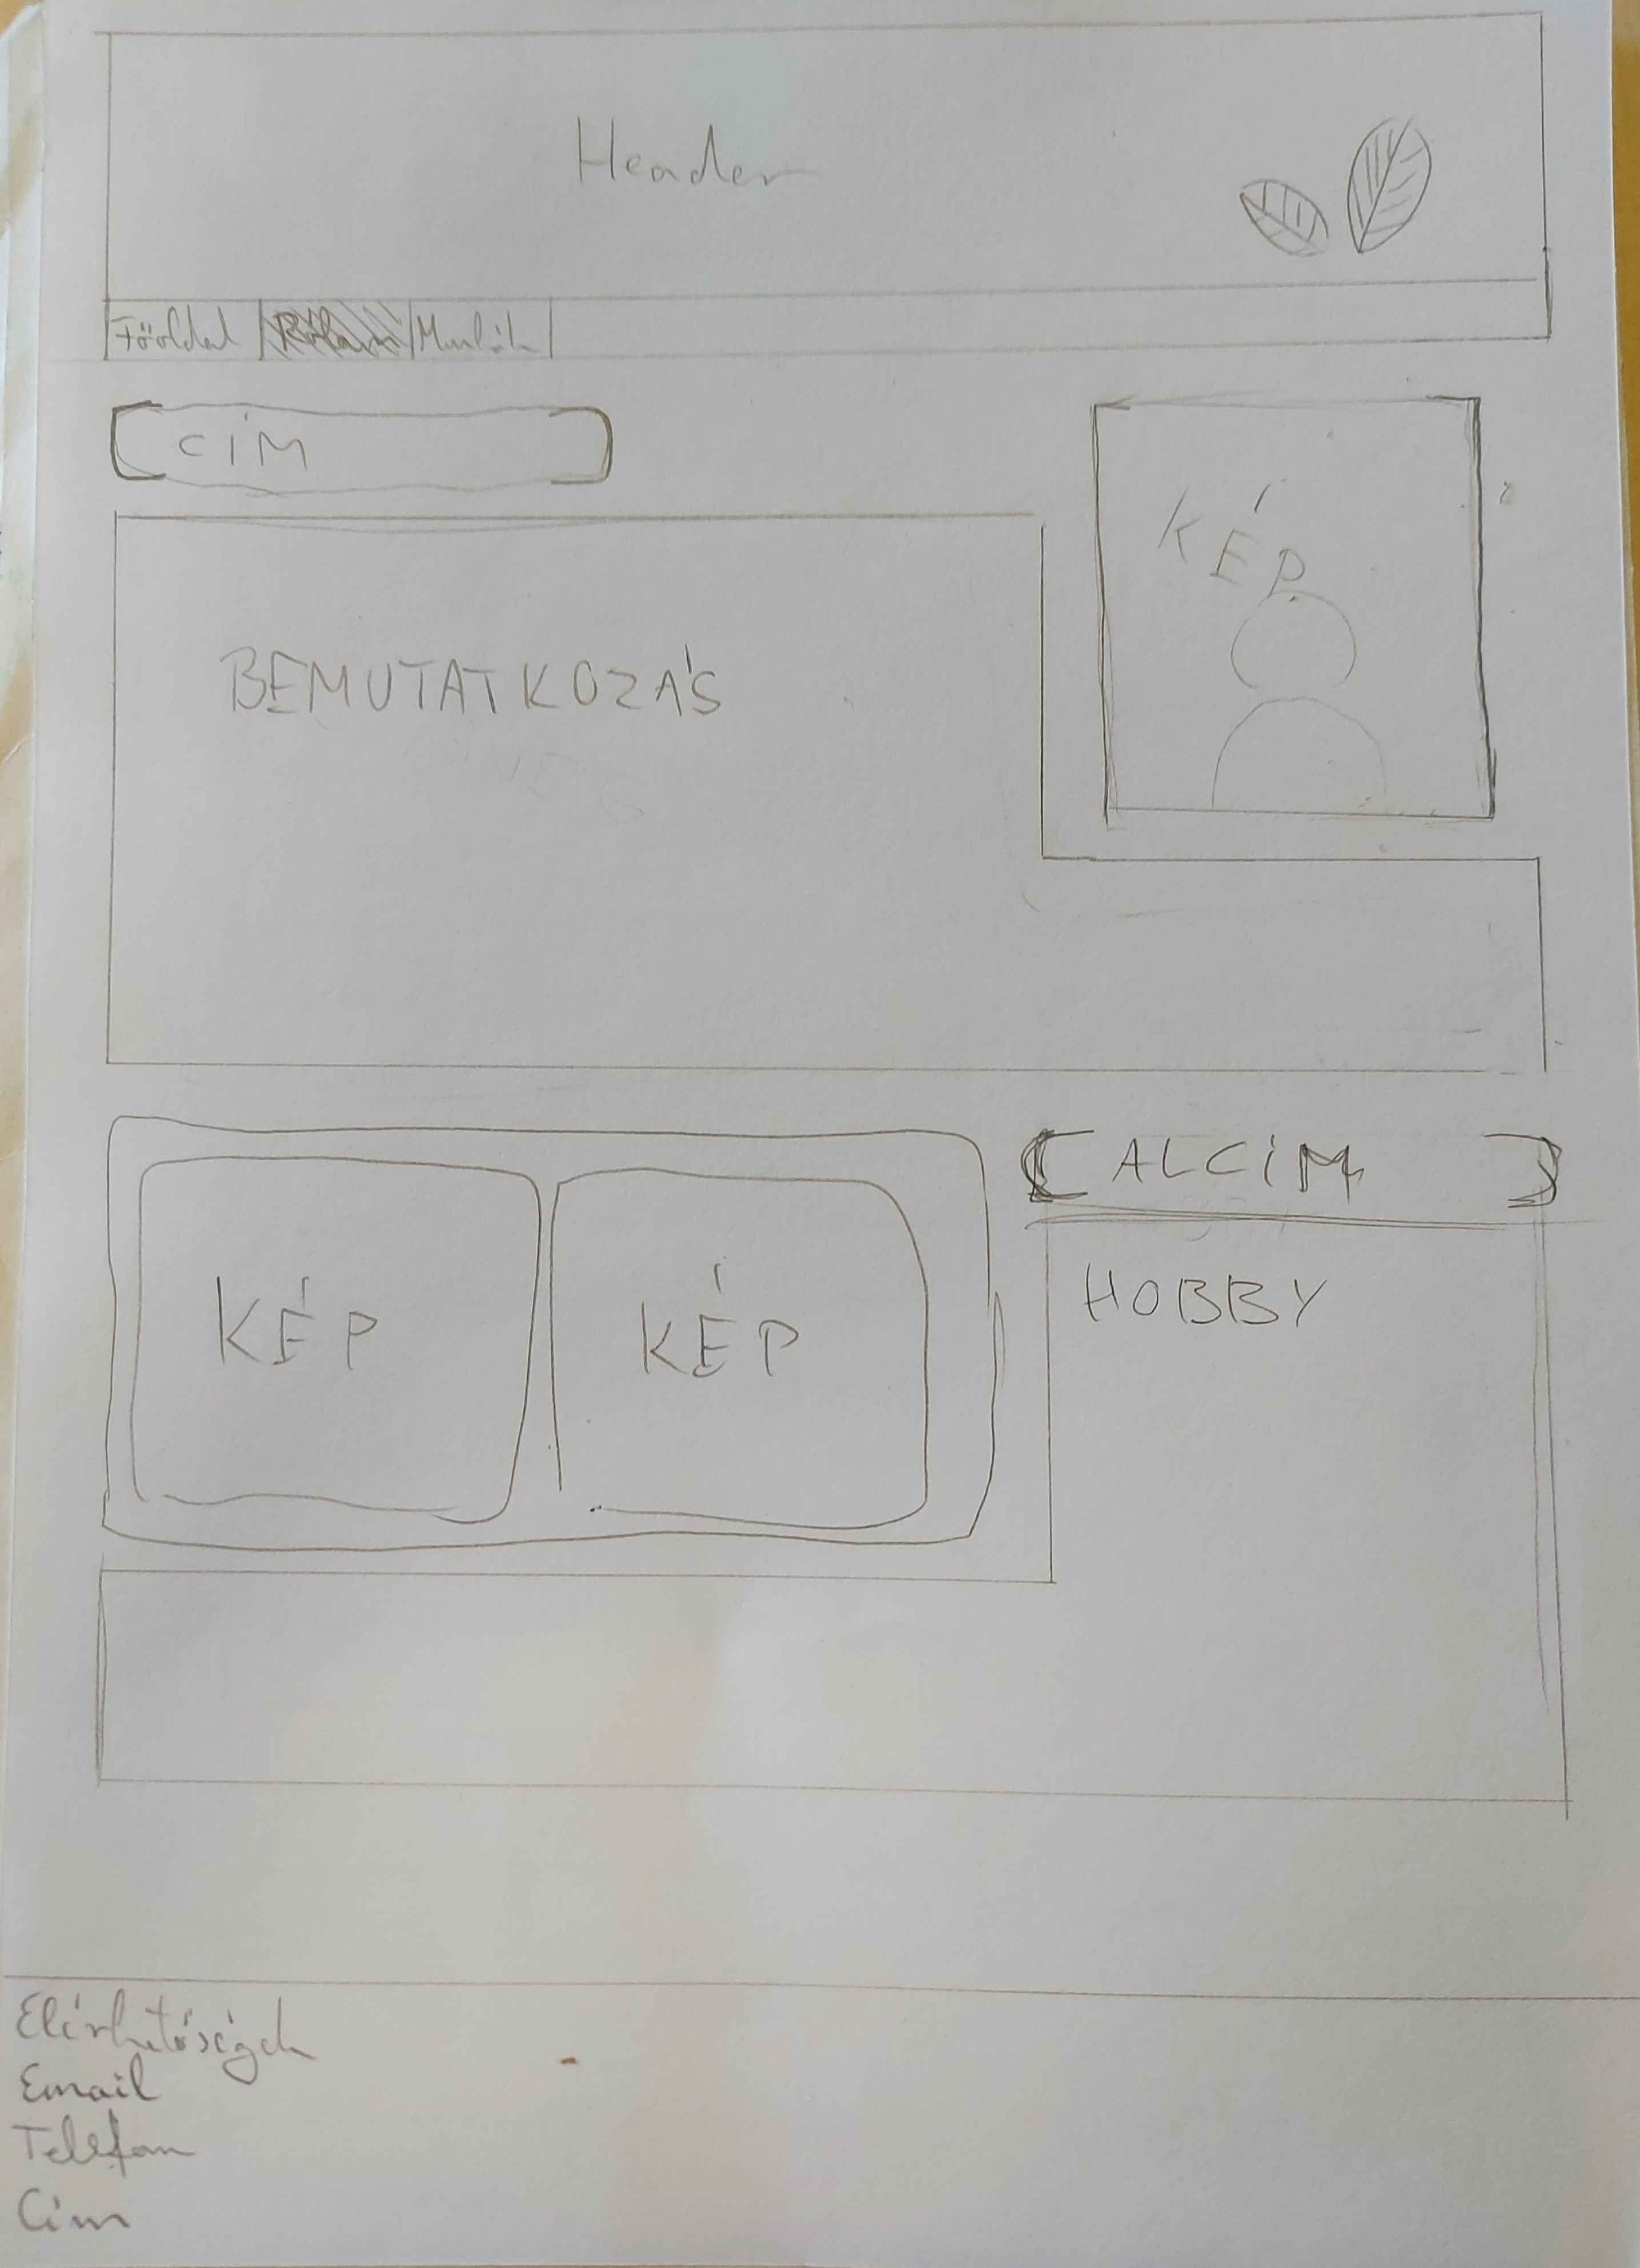 Header
Főoldal Rólam Munkáik
CÍM
KÉP
BEMUTATKOZÁS
ALCÍM
KÉP KÉP
HOBBY
Elérhetőségek
Email
Telefon
Cím